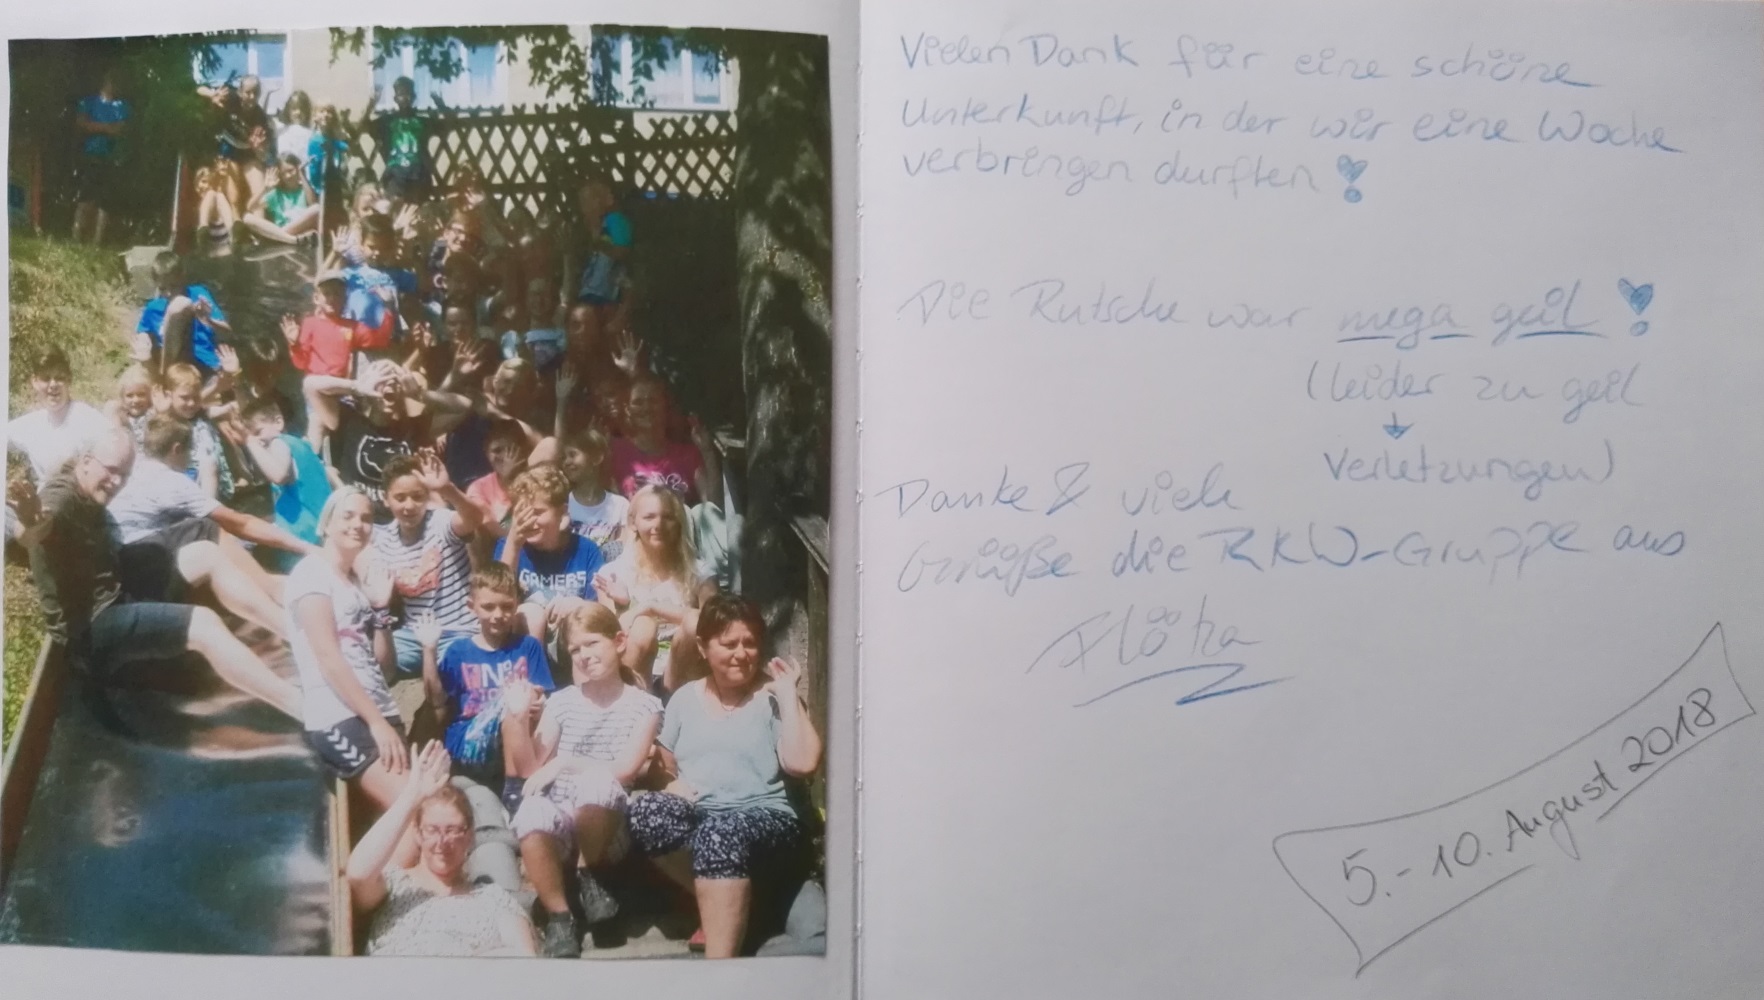 GAMERS
Vielen Dank für eine schöne
Unterkunft, in der wir eine Woche
verbringen durften!
Die Rutsche war mega geil!
(leider zu geil
↓
Verletzungen)
Danke & viele
Grüße die RKW-Gruppe aus
Flöha
5.-10. August 2018